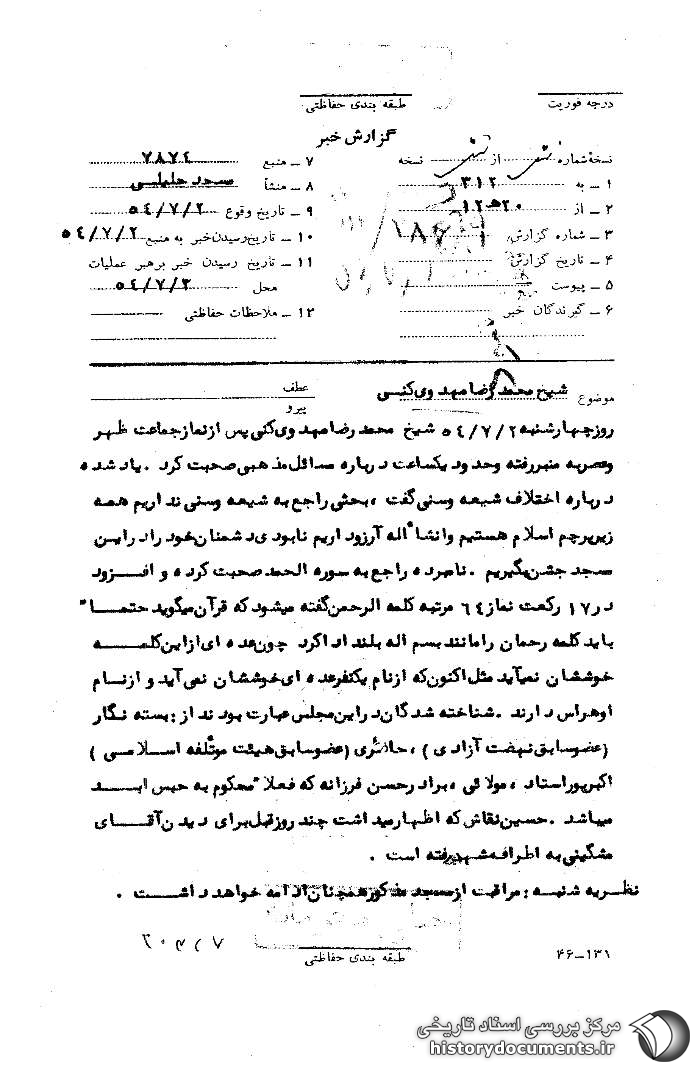 درجه فوریت
طبقه بندی حفاظتی
گزارش خبر
نسخهٔ شماره از نسخه
۱ ـ به ۳۱۲
۲ ـ از ۲۰ ﻫ ۱۲
۳ ـ شماره گزارش
۴ ـ تاریخ گزارش
۵ ـ پیوست
۶ ـ گیرندگان خبر
۷ ـ منبع ۷۸۷٤
۸ ـ منشأ مسجد جلیلی
۹ ـ تاریخ وقوع ٥٤/۷/۲
۱۰ ـ تاریخ رسیدن خبر به منبع ٥٤/۷/۲
۱۱ ـ تاریخ رسیدن خبر برهبر عملیات
محل ٥٤/۷/۳
۱۲ ـ ملاحظات حفاظتی
موضوع شیخ محمد رضا مهدوی کنی
عطف
پیرو
روز چهارشنبه ٥٤/۷/۲ شیخ محمد رضا مهدوی کنی پس از نماز جماعت ظهر
وعصر به منبر رفته وحدود یکساعت درباره مسائل مذهبی صحبت کرد . یاد شده
درباره اختلاف شیعه وسنی گفت ، بحثی راجع به شیعه وسنی نداریم همه
زیر پرچم اسلام هستیم وانشاﺀ اله آرزو داریم نابودی دشمنان خود را در این
مسجد جشن بگیریم . نامبرده راجع به سوره الحمد صحبت کرده و افزود
در ۱۷ رکعت نماز ٦٤ مرتبه کلمه الرحمن گفته میشود که قرآن میگوید حتما"
باید کلمه رحمان را مانند بسم اله بلند ادا کرد چون عده ای از این کلمه
خوششان نمیآید مثل اکنون که از نام یکنفر عده ای خوششان نمی آید و از نام
او هراس دارند . شناخته شدگان در این مجلس عبارت بودند از : بسته نگار
(عضو سابق نهضت آزادی ) ، حائری (عضو سابق هیئت موتلفه اسلامی )
اکبر پور استاد ، مولائی ، برادر حسن فرزانه که فعلا" محکوم به حبس ابد
میباشد . حسین نقاش که اظهار میداشت چند روز قبل برای دیدن آقای
مشگینی به اطراف مشهد رفته است .
نظریه شنبه : مراقبت از مسجد مذکور همچنان ادامه خواهد داشت .
طبقه بندی حفاظتی
۱۳۱–۴۶
مرکز بررسی اسناد تاریخی
historydocuments.ir